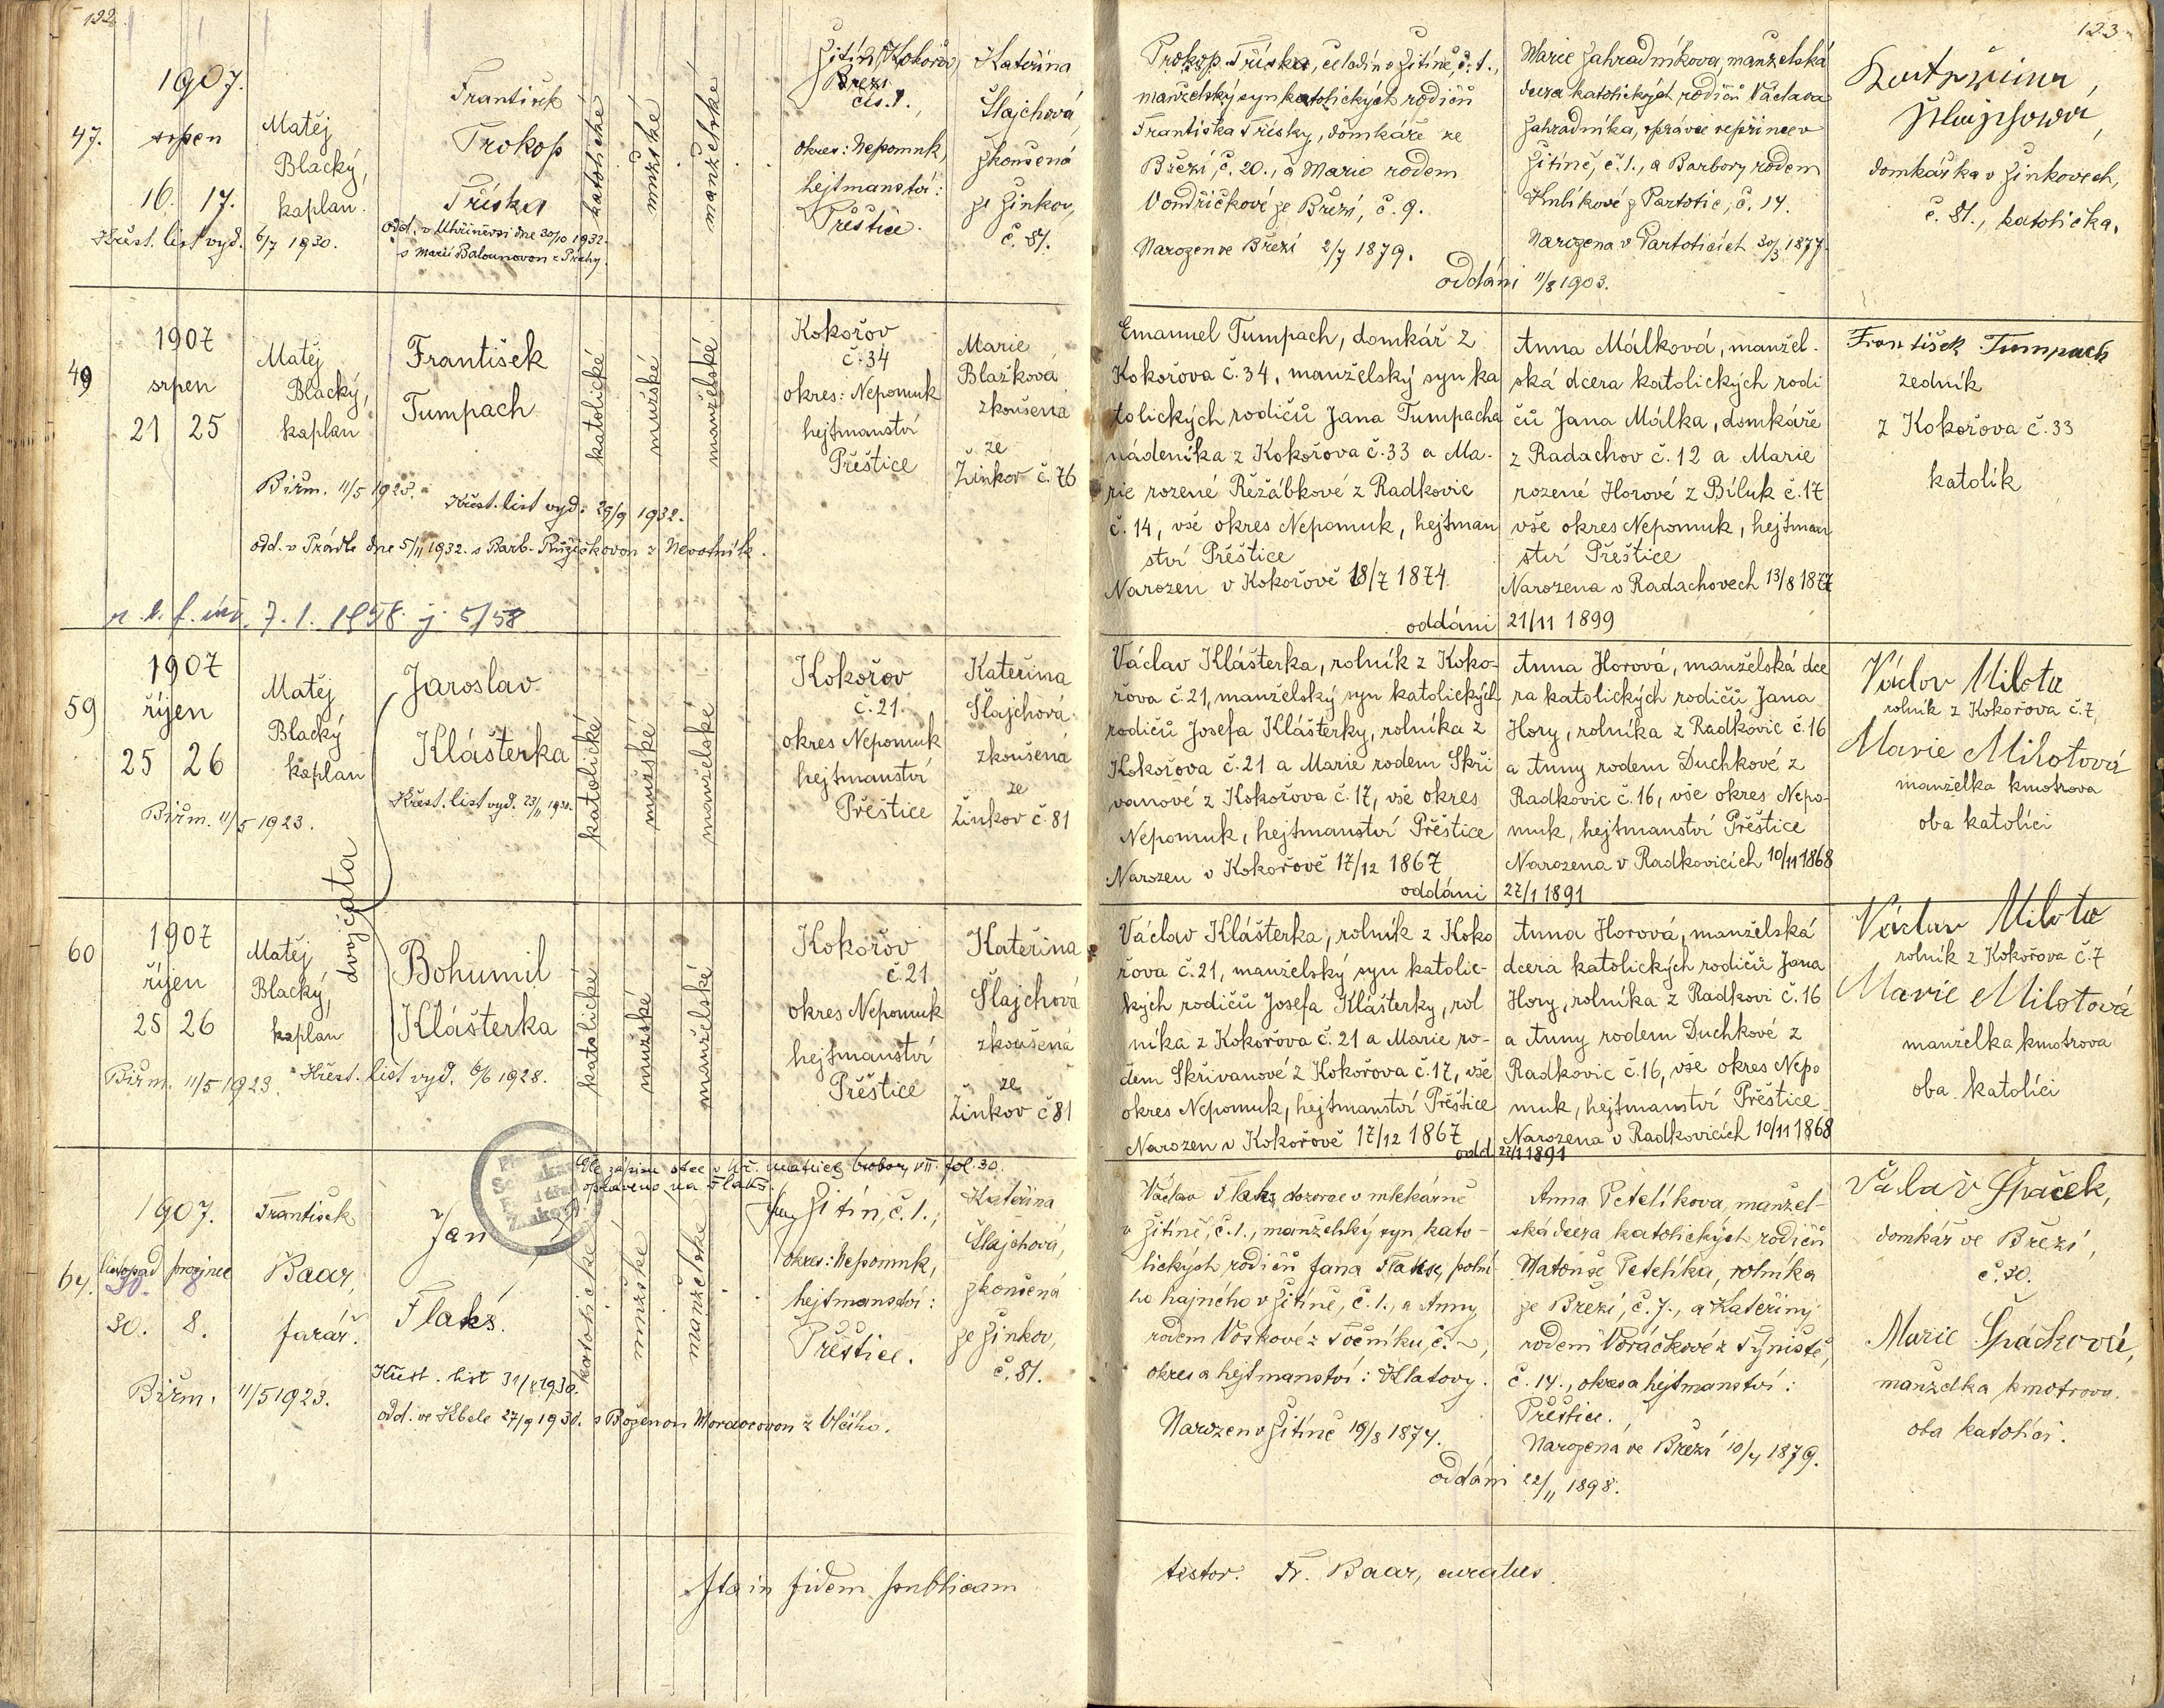 122
1907.
47. srpen
16. 17.
Křest. list vyd. 6/7 1930.
Matěj
Blacký,
kaplan.
František
Prokop
Tříska
odd. v Uhříněvsi dne 30/10 1932.
s Marií Balounovou z Prahy.
katolické
mužské
manželské
Žitín, Kokořov,
Březí
čís. 1.
okres: Nepomuk,
hejtmanství:
Přeštice.
Kateřina
Šlajchová,
zkoušená
ze Žinkov,
č. 81.
49
1907
srpen
21 25
Matěj
Blacký,
kaplan
František
Tumpach
Biřm. 11/5 1923.
Křest. list vyd. 29/9 1932.
odd. v Prádle dne 5/11 1932. s Barb. Růžičkovou z Nevotník.
7. 1. 1958. j. 5/58
katolické
mužské
manželské
Kokořov
č. 34
okres: Nepomuk
hejtmanství
Přeštice
Marie
Blažková
zkoušená
ze
Žinkov č. 76
59
1907
říjen
25 26
Matěj
Blacký
kaplan
Biřm. 11/5 1923.
Jaroslav
Klášterka
Křest. list vyd.
dvojčata
katolické
mužské
manželské
Kokořov
č. 21.
okres Nepomuk
hejtmanství
Přeštice
Kateřina
Šlajchová
zkoušená
ze
Žinkov č. 81
60
1907
říjen
25 26
Matěj
Blacký,
kaplan
Bohumil
Klášterka
Biřm. 11/5 1923. Křest. list vyd. 6/6 1928.
katolické
mužské
manželské
Kokořov
č. 21
okres Nepomuk
hejtmanství
Přeštice
Kateřina
Šlajchová
zkoušená
ze
Žinkov č 81
Dle zápisu otce v kř. matrice fol. 30.
opraveno na Flaks.
64.
1907.
listopad prosinec
30. 8
30. 8.
František
Baar,
farář.
Biřm. 11/5 1923.
Jan
Flaks.
Křest. list 31/8 1930.
odd. ve Kbele 27/9 1930. s Boženou Moravcovou z Vlčího.
katolické
mužské
manželské
Žitín, č. 1.,
okres: Nepomuk,
hejtmanství:
Přeštice.
Kateřina
Šlajchová,
zkoušená
ze Žinkov,
č. 81.
Ita in fidem publicam
123
Prokop Tříska, čeledín v Žitíně, č. 1.,
manželský syn katolických rodičů
Františka Třísky, domkáře ze
Březí, č. 20., a Marie rodem
Vondřičkové ze Březí, č. 9.
Narozen ve Březí 2/7 1879.
Marie Zahradníková, manželská
dcera katolických rodičů Václava
Zahradníka, správce vepřince v
Žitíně, č. 1., a Barbory rodem
Kulíkové z Partotic, č. 14.
Narozena v Partoticích 30/3 1877.
oddáni 11/8 1903.
Kateřina
Šlajsová,
domkářka v Žinkovech,
č. 81., katolička.
Emanuel Tumpach, domkář z
Kokořova č. 34, manželský syn ka
tolických rodičů Jana Tumpacha
nádeníka z Kokořova č. 33 a Ma-
rie rozené Řežábkové z Radkovic
č. 14, vše okres Nepomuk, hejtman
ství Přeštice
Narozen v Kokořově 18/7 1874
Anna Málková, manžel-
ská dcera katolických rodi
čů Jana Málka, domkáře
z Radachov č. 12 a Marie
rozené Horové z Bíluk č. 17
vše okres Nepomuk, hejtman
ství Přeštice
Narozena v Radachovech 13/8 1877
oddáni 21/11 1899
František Tumpach
zedník
z Kokořova č. 33
katolík
Václav Klášterka, rolník z Koko-
řova č. 21, manželský syn katolických
rodičů Josefa Klášterky, rolníka z
Kokořova č. 21 a Marie rodem Skři
vanové z Kokořova č. 17, vše okres
Nepomuk, hejtmanství Přeštice
Narozen v Kokořově 17/12 1867
Anna Horová, manželská dce
ra katolických rodičů Jana
Hory, rolníka z Radkovic č. 16
a Anny rodem Duchkové z
Radkovic č. 16, vše okres Nepo-
muk, hejtmanství Přeštice
Narozena v Radkovicích 10/11 1868
oddáni 27/1 1891
Václav Milota
rolník z Kokořova č. 7,
Marie Milotová
manželka kmotrova
oba katolíci
Václav Klášterka, rolník z Koko
řova č. 21, manželský syn katolic-
kých rodičů Josefa Klášterky, rol
níka z Kokořova č. 21 a Marie ro-
dem Skřivanové z Kokořova č. 17, vše
okres Nepomuk, hejtmanství Přeštice
Narozen v Kokořově 17/12 1867
Anna Horová, manželská
dcera katolických rodičů Jana
Hory, rolníka z Radkovi č. 16
a Anny rodem Duchkové z
Radkovic č. 16, vše okres Nepo
muk, hejtmanství Přeštice
Narozena v Radkovicích 10/11 1868
odd. 27/1 1891
Václav Milota
rolník z Kokořova č. 7
Marie Milotová
manželka kmotrova
oba katolíci
Václav Flaks, dozorce v mlékárně
v Žitíně, č. 1., manželský syn kato-
lických rodičů Jana Flakse, polní-
ho hajného v Žitíně, č. 1., a Anny
rodem Voskové z Točníku, č. ~,
okres a hejtmanství: Klatovy.
Narozen v Žitíně 19/8 1874.
Anna Petelíkova, manžel-
ská dcera katolických rodičů
Matouše Petelíka, rolníka
ze Březí, č. 7., a Kateřiny
rodem Voráčkové z Týniště,
č. 14., okres a hejtmanství:
Přeštice.
Narozená ve Březí 10/4 1879.
oddáni 22/11 1898.
Václav Špaček,
domkář ve Březí,
č. 30.
Marie Špačková,
manželka kmotrova.
oba katolíci.
testor. Fr. Baar, curatus.